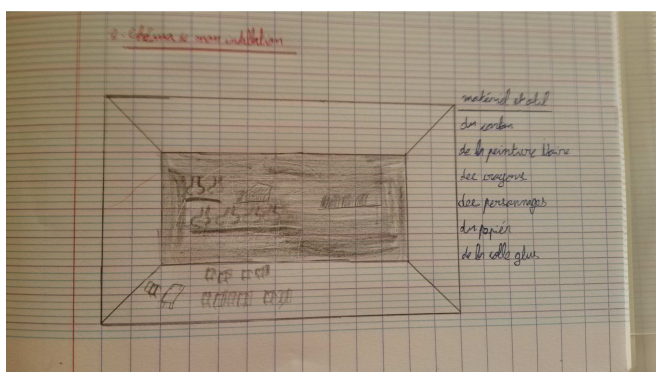 schéma de mon installation
matériel et outil
du carton
de la peinture noire
des crayons
des personnages
du papier
de la colle glus